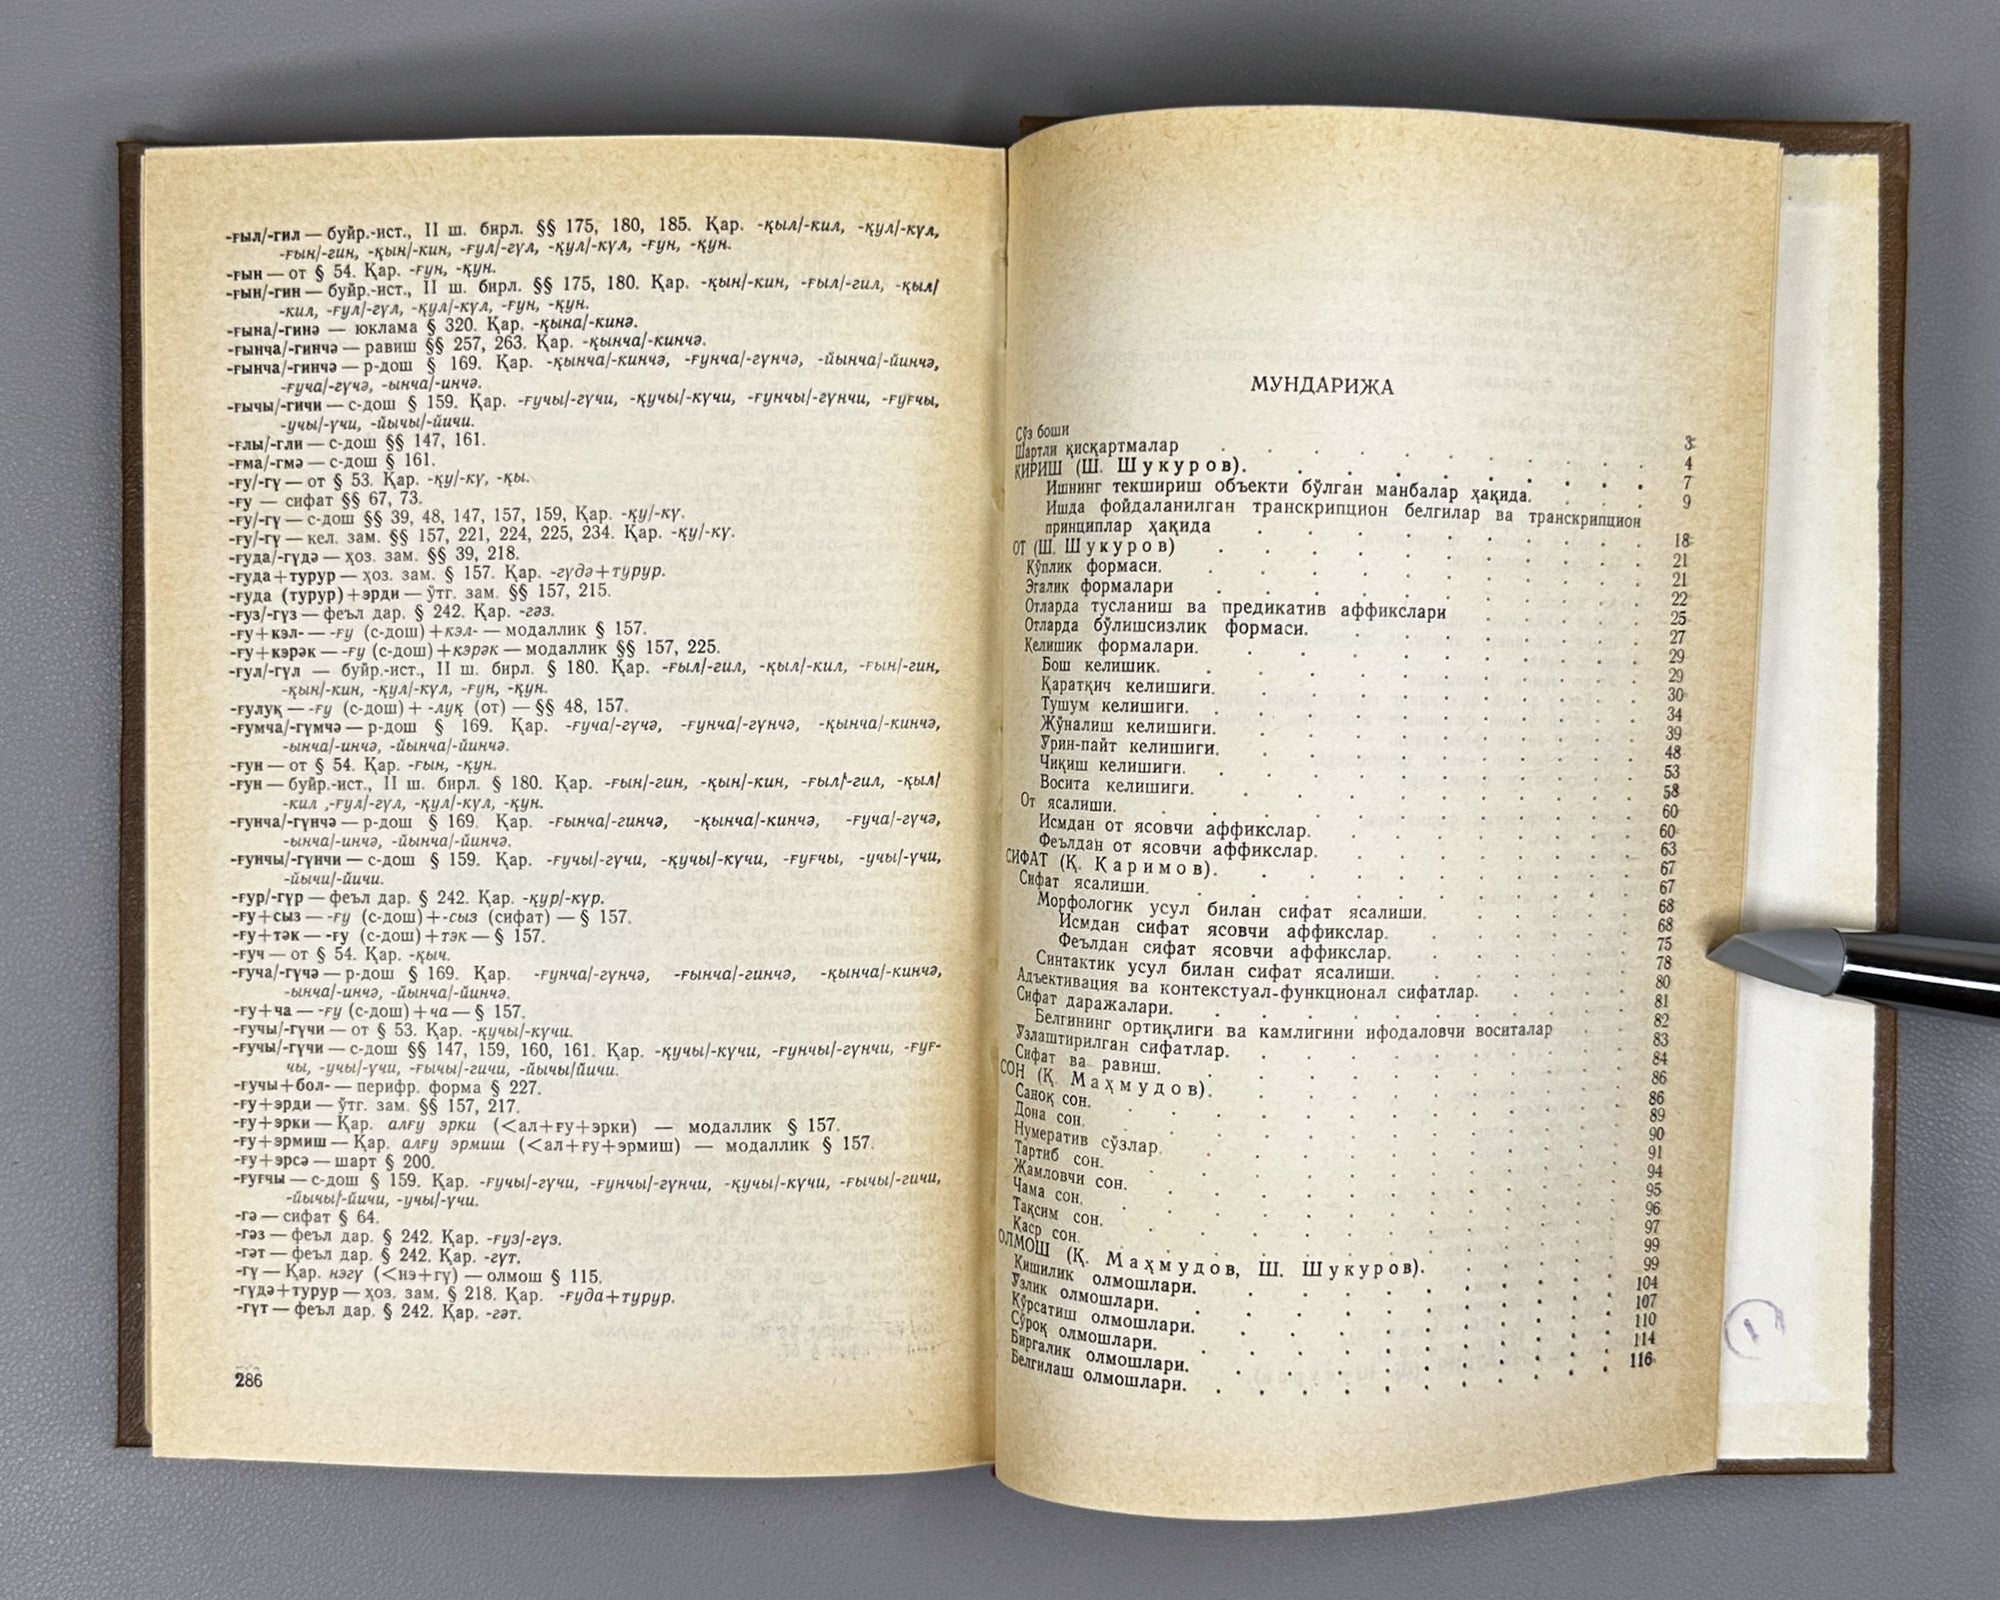 -ғыл/-гил — буйр.-ист., II ш. бирл. §§ 175, 180, 185. Қар. -қыл/-кил, -қул/-күл,
-ғын/-гин, -қын/-кин, -ғул/-гүл, -қул/-күл, -ғун, -қун.
-ғын — от § 54. Қар. -ғун, -қун.
-ғын/-гин — буйр.-ист., II ш. бирл. §§ 175, 180. Қар. -қын/-кин, -ғыл/-гил, -қыл/
-кил, -ғул/-гүл, -қул/-күл, -ғун, -қун.
-ғына/-гинә — юклама § 320. Қар. -қына/-кинә.
-ғынча/-гинчә — равиш §§ 257, 263. Қар. -қынча/-кинчә.
-ғынча/-гинчә — р-дош § 169. Қар. -қынча/-кинчә, -ғунча/-гүнчә, -йынча/-йинчә,
-ғуча/-гүчә, -ынча/-инчә.
-ғычы/-гичи — с-дош § 159. Қар. -ғучы/-гүчи, -қучы/-күчи, -ғунчы/-гүнчи, -ғуғчы,
-учы/-үчи, -йычы/-йичи.
-ғлы/-гли — с-дош §§ 147, 161.
-ғма/-гмә — с-дош § 161.
-ғу/-гү — от § 53. Қар. -қу/-кү, -қы.
-ғу — сифат §§ 67, 73.
-ғу/-гү — с-дош §§ 39, 48, 147, 157, 159, Қар. -қу/-кү.
-ғу/-гү — кел. зам. §§ 157, 221, 224, 225, 234. Қар. -қу/-кү.
-ғуда/-гүдә — ҳоз. зам. §§ 39, 218.
-ғуда+турур — ҳоз. зам. § 157. Қар. -гүдә+турур.
-ғуда (турур)+эрди — ўтг. зам. §§ 157, 215.
-ғуз/-гүз — феъл дар. § 242. Қар. -гәз.
-ғу+кэл- — -ғу (с-дош)+кэл- — модаллик § 157.
-ғу+кэрәк — -ғу (с-дош)+кэрәк — модаллик §§ 157, 225.
-ғул/-гүл — буйр.-ист., II ш. бирл. § 180. Қар. -ғыл/-гил, -қыл/-кил, -ғын/-гин,
-қын/-кин, -қул/-күл, -ғун, -қун.
-ғулуқ — -ғу (с-дош)+ -луқ (от) — §§ 48, 157.
-ғумча/-гүмчә — р-дош § 169. Қар. -ғуча/-гүчә, -ғунча/-гүнчә, -қынча/-кинчә,
-ынча/-инчә, -йынча/-йинчә.
-ғун — от § 54. Қар. -ғын, -қун.
-ғун — буйр.-ист., II ш. бирл. § 180. Қар. -ғын/-гин, -қын/-кин, -ғыл/-гил, -қыл/
-кил ,-ғул/-гүл, -қул/-күл, -қун.
-ғунча/-гүнчә — р-дош § 169. Қар. -ғынча/-гинчә, -қынча/-кинчә, -ғуча/-гүчә,
-ынча/-инчә, -йынча/-йинчә.
-ғунчы/-гүнчи — с-дош § 159. Қар. -ғучы/-гүчи, -қучы/-күчи, -ғуғчы, -учы/-үчи,
-йычи/-йичи.
-ғур/-гүр — феъл дар. § 242. Қар. -қур/-күр.
-ғу+сыз — -ғу (с-дош)+-сыз (сифат) — § 157.
-ғу+тәк — -ғу (с-дош)+тэк — § 157.
-ғуч — от § 54. Қар. -қыч.
-ғуча/-гүчә — р-дош § 169. Қар. -ғунча/-гүнчә, -ғынча/-гинчә, -қынча/-кинчә,
-ынча/-инчә, -йынча/-йинчә.
-ғу+ча — -ғу (с-дош)+ча — § 157.
-ғучы/-гүчи — от § 53. Қар. -қучы/-күчи.
-ғучы/-гүчи — с-дош §§ 147, 159, 160, 161. Қар. -қучы/-күчи, -ғунчы/-гүнчи, -ғуғ-
чы, -учы/-үчи, -ғычы/-гичи, -йычы/йичи.
-ғучы+бол- — перифр. форма § 227.
-ғу+эрди — ўтг. зам. §§ 157, 217.
-ғу+эрки — Қар. алғу эрки (<ал+ғу+эрки) — модаллик § 157.
-ғу+эрмиш — Қар. алғу эрмиш (<ал+ғу+эрмиш) — модаллик § 157.
-ғу+эрсә — шарт § 200.
-ғуғчы — с-дош § 159. Қар. -ғучы/-гүчи, -ғунчы/-гүнчи, -қучы/-күчи, -ғычы/-гичи,
-йычы/-йичи, -учы/-үчи.
-гә — сифат § 64.
-гәз — феъл дар. § 242. Қар. -ғуз/-гүз.
-гәт — феъл дар. § 242. Қар. -гүт.
-гү — Қар. нэгү (<нэ+гү) — олмош § 115.
-гүдә+турур — ҳоз. зам. § 218. Қар. -ғуда+турур.
-гүт — феъл дар. § 242. Қар. -гәт.
286
МУНДАРИЖА
Сўз боши 3
Шартли қисқартмалар 4
КИРИШ (Ш. Шукуров). 7
Ишнинг текшириш объекти бўлган манбалар ҳақида. 9
Ишда фойдаланилган транскрипцион белгилар ва транскрипцион
принциплар ҳақида 18
ОТ (Ш. Шукуров) 21
Кўплик формаси. 21
Эгалик формалари 22
Отларда тусланиш ва предикатив аффикслари 25
Отларда бўлишсизлик формаси. 27
Келишик формалари. 29
Бош келишик. 29
Қаратқич келишиги. 30
Тушум келишиги. 34
Жўналиш келишиги. 39
Ўрин-пайт келишиги. 48
Чиқиш келишиги. 53
Восита келишиги. 58
От ясалиши. 60
Исмдан от ясовчи аффикслар. 60
Феълдан от ясовчи аффикслар. 63
СИФАТ (Қ. Каримов). 67
Сифат ясалиши. 67
Морфологик усул билан сифат ясалиши. 68
Исмдан сифат ясовчи аффикслар. 68
Феълдан сифат ясовчи аффикслар. 75
Синтактик усул билан сифат ясалиши. 78
Адъективация ва контекстуал-функционал сифатлар. 80
Сифат даражалари. 81
Белгининг ортиқлиги ва камлигини ифодаловчи воситалар 82
Ўзлаштирилган сифатлар. 83
Сифат ва равиш. 84
СОН (Қ. Маҳмудов). 86
Саноқ сон. 86
Дона сон. 89
Нумератив сўзлар. 90
Тартиб сон. 91
Жамловчи сон. 94
Чама сон. 95
Тақсим сон. 96
Каср сон. 97
ОЛМОШ (Қ. Маҳмудов, Ш. Шукуров). 99
Кишилик олмошлари. 99
Ўзлик олмошлари. 104
Кўрсатиш олмошлари. 107
Сўроқ олмошлари. 110
Биргалик олмошлари. 114
Белгилаш олмошлари. 116
1